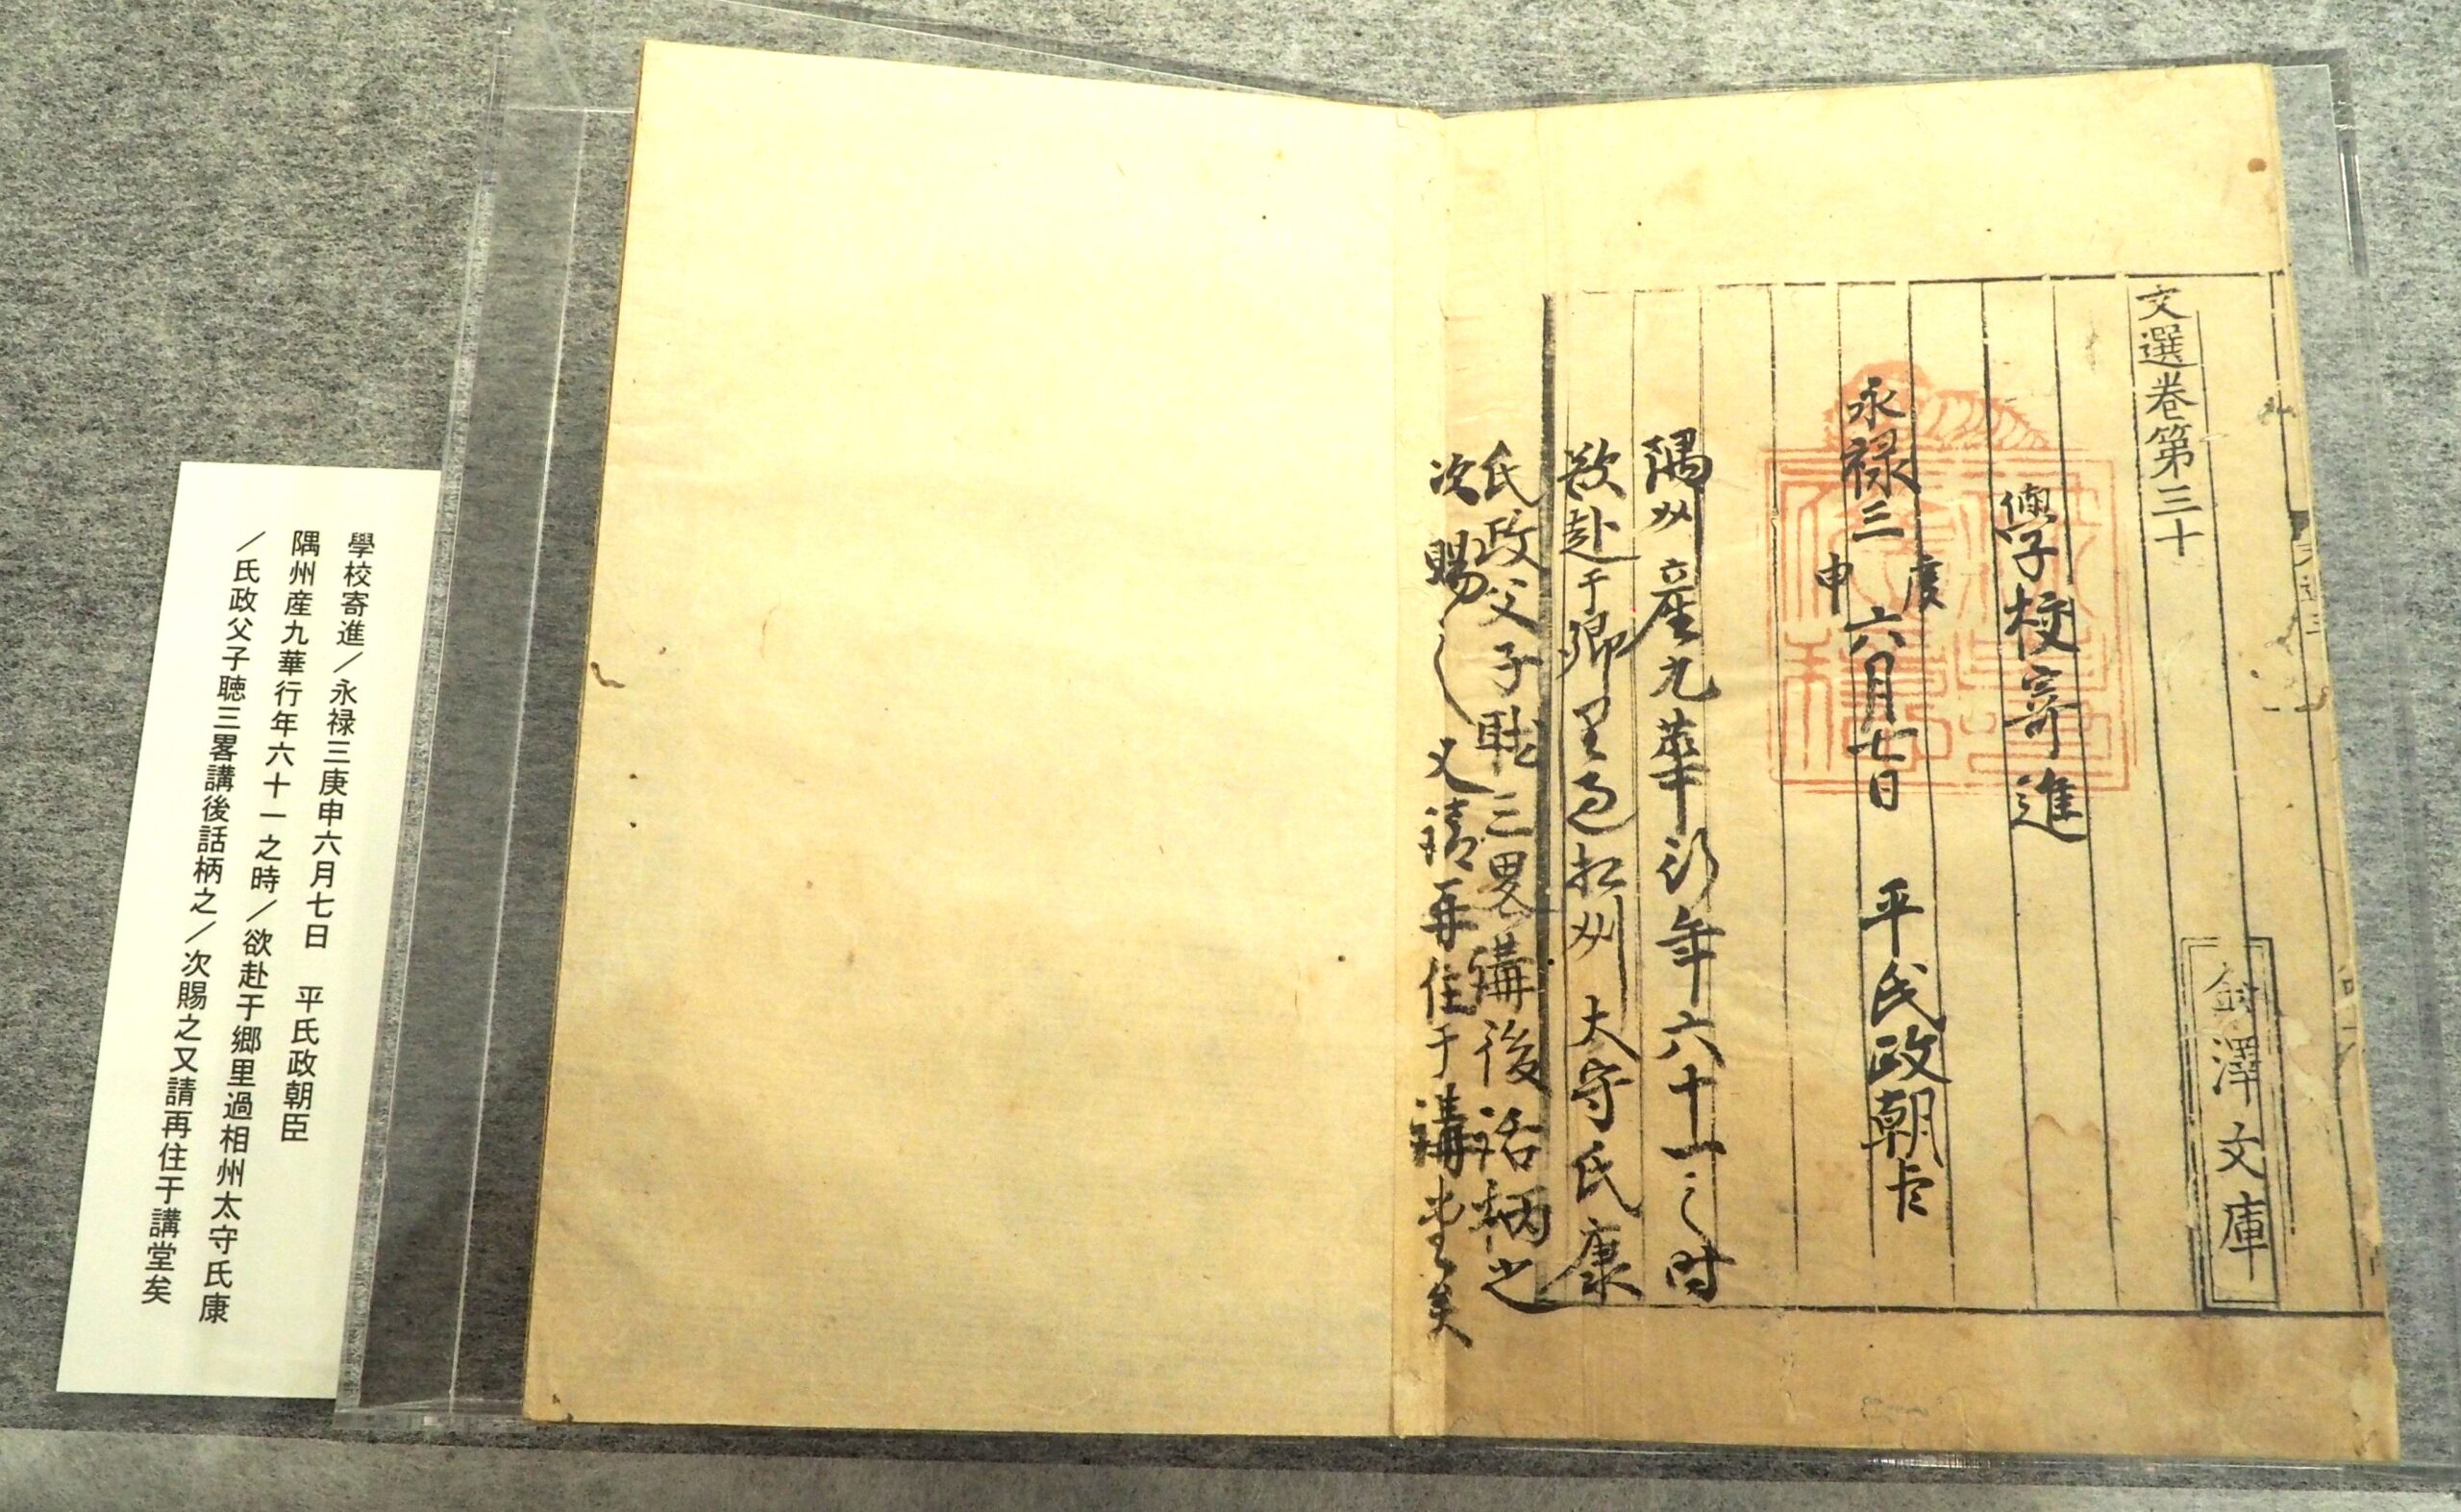 文選巻第三十
金澤文庫
學校寄進
永禄三庚申六月七日　平氏政朝臣
隅州産九華行年六十一之時
欲赴于郷里過相州太守氏康
氏政父子聴三畧講後話柄之
次賜之又請再住于講堂矣
學校寄進／永禄三庚申六月七日　平氏政朝臣
隅州産九華行年六十一之時／欲赴于郷里過相州太守氏康
／氏政父子聴三畧講後話柄之／次賜之又請再住于講堂矣